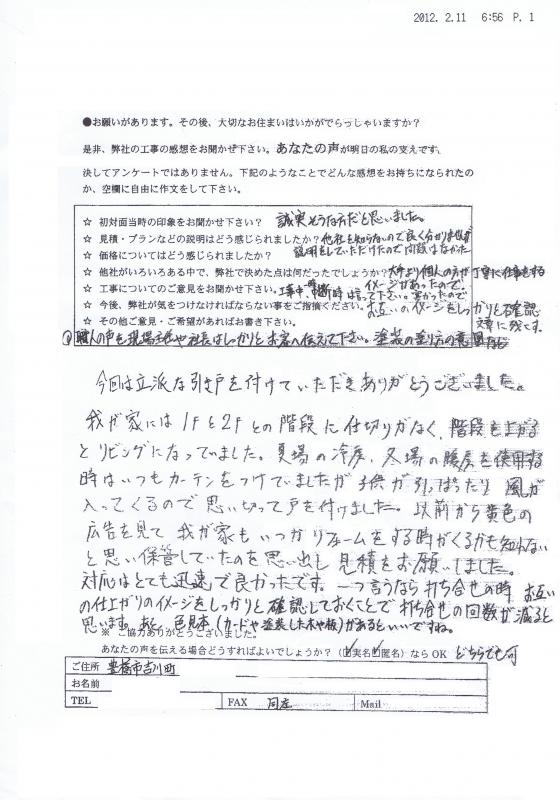 2012. 2.11 6:56 P. 1
●お願いがあります。その後、大切なお住まいはいかがでらっしゃいますか？
是非、弊社の工事の感想をお聞かせ下さい。あなたの声が明日の私の支えです、
決してアンケートではありません。下記のようなことでどんな感想をお持ちになられたの
か、空欄に自由に作文をして下さい。
☆ 初対面当時の印象をお聞かせ下さい？ 誠実そうな方だと思いました。
☆ 見積・プランなどの説明はどう感じられましたか？他社を知らないので良く分かりませんが
☆ 価格についてはどう感じましたか？ 説明をしていただけたので問題はなかった
☆ 他社がいろいろある中で、弊社で決めた点は何だったでしょうか？大手より個人の方が丁寧に仕事をする
☆ 工事についてのご意見をお聞かせ下さい。 イメージがあったので。
☆ 今後、弊社が気をつけなければならない事をご指摘ください。
お互いのイメージをしっかりと確認
☆ その他ご意見・ご希望があればお書き下さい。 文章に残す。
職人の声を現場主任や社長はしっかりとお客へ伝えて下さい。塗装の塗り方の意
今回は立派な引き戸を付けていただきありがとうございました。
我が家には1Fと2Fとの階段に仕切りがなく、階段を上がる
とリビングになっていました。夏場の冷房、冬場の暖房を使用する
時はいつもカーテンをつけていましたが子供が引っぱったり 風が
入ってくるので思い切って戸を付けました。以前から黄色の
広告を見て 我が家もいつかリフォームをする時がくるかも知れない
と思い保管していたのを思い出し 見積をお願いしました。
対応はとても迅速で良かったです。一つ言うなら打ち合せの時、お互い
の仕上がりのイメージをしっかりと確認しておくことで打ち合せの回数が減ると
思います。あと、色見本（カードや塗装した木や板）があるといいですね。
※ ご協力ありがとうございました。
あなたの声を伝える場合どうすればよいでしょうか？（実名 匿名）なら OK どちらでも可
ご住所 豊橋市吉川町
お名前
TEL FAX 同左 Mail